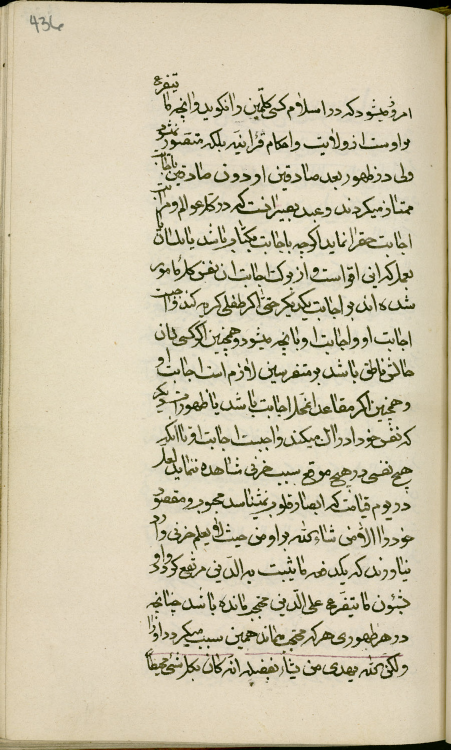 436
امروز میشود که در اسلام کسی کلمتین را نگوید و آنچه ما یتفرع
بر اوست از ولایت و احکام قرآنیه بلکه متصور نمیشود
ولی در ظهور بعد صادقین از دون صادقین باجابت
ممتاز میگردند و عبد بصیر آنست که در کل عوالم و مراتب
اجابت حق را نماید اگر چه باجابت بکتاب باشد یا بلسان یا
بعمل که این اقوی است و از برکت اجابت آن نفس کل مأمور
شده‌اند بر اجابت یکدیگر حتی اگر طفلی گریه کند واجب
اجابت او و اجابت او بآنچه میشود و همچنین اگر کسی لسان
حالش ناطق باشد بر متفرسین لازم است اجابت او
و همچنین اگر مقاعد آن محل اجابت باشد یا ظهورات دیگر
که نفس خود ادراک میکند واجبست اجابت او تا آنکه
هیچ نفسی در هیچ موقع سبب حزنی مشاهده ننماید لعل
در یوم قیامت که ابصار قلوب نمیشناسد محبوب و مقصود
خود را الا من شاء الله بر او من حیث لا یعلم حزنی وارد
نیاورند که یکدفعه ما یثبت به الدین مرتفع گردد و او
بشئون ما یتفرع علی الدین محتجب مانده باشد چنانچه
در هر ظهوری هر که محتجب میماند همین سبب میگردد او را
ولکن الله یهدی من یشاء بفضله انه کان بکل شئ محیطا